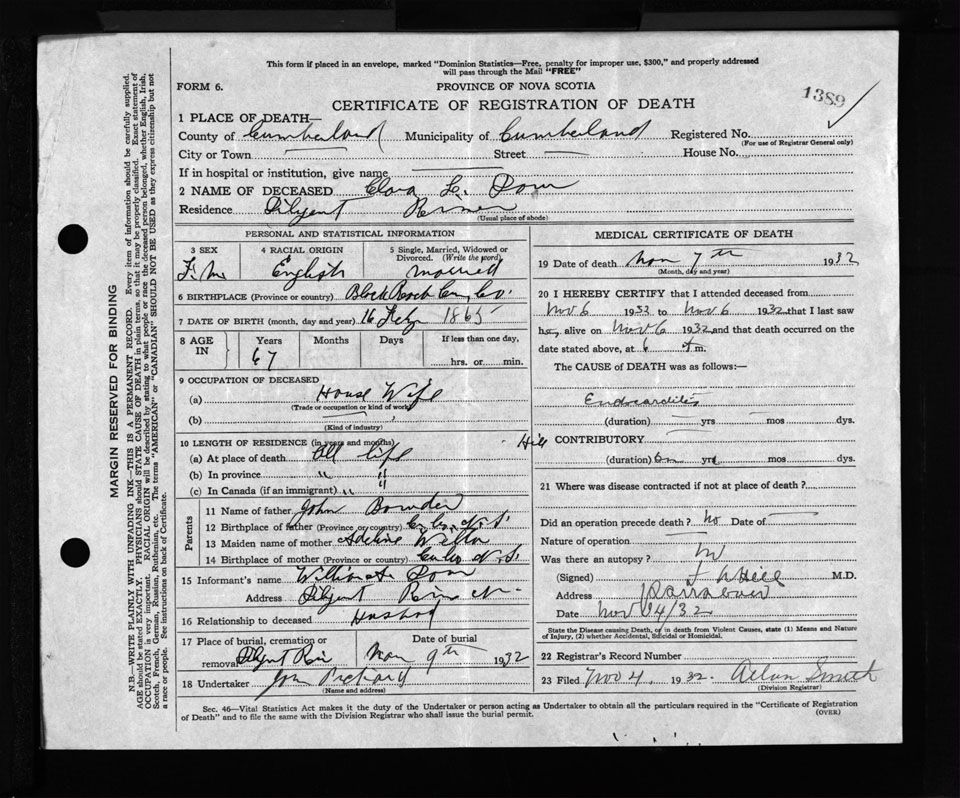 This form if placed in an envelope, marked "Dominion Statistics—Free, penalty for improper use, $300," and properly addressed
will pass through the Mail "FREE"
FORM 6.
PROVINCE OF NOVA SCOTIA
1389
CERTIFICATE OF REGISTRATION OF DEATH
1 PLACE OF DEATH—
County of Cumberland Municipality of Cumberland Registered No.
(For use of Registrar General only)
City or Town Street House No.
If in hospital or institution, give name
2 NAME OF DECEASED Clara
Residence River
(Usual place of abode)
PERSONAL AND STATISTICAL INFORMATION
3 SEX 4 RACIAL ORIGIN 5 Single, Married, Widowed or Divorced. (Write the word)
English married
6 BIRTHPLACE (Province or country)
7 DATE OF BIRTH (month, day and year) 16 1865
8 AGE IN Years Months Days If less than one day,
67 hrs. or min.
9 OCCUPATION OF DECEASED
(a) House Wife
(Trade or occupation or kind of work)
(b)
(Kind of industry)
10 LENGTH OF RESIDENCE (in years and months)
(a) At place of death All life
(b) In province " "
(c) In Canada (if an immigrant) " "
Parents
11 Name of father John
12 Birthplace of father (Province or country) N.S.
13 Maiden name of mother Adeline
14 Birthplace of mother (Province or country) N.S.
15 Informant's name William
Address
16 Relationship to deceased Husband
17 Place of burial, cremation or removal Date of burial
9th 1932
18 Undertaker
(Name and address)
MEDICAL CERTIFICATE OF DEATH
19 Date of death Nov 7th 1932
(Month, day and year)
20 I HEREBY CERTIFY that I attended deceased from
Nov 6 to Nov 6 1932, that I last saw
h alive on Nov 6 1932, and that death occurred on
date stated above, at 6 m.
The CAUSE of DEATH was as follows:—
Endocarditis
(duration) yrs mos dys.
Hill CONTRIBUTORY
(duration) yrs mos dys.
21 Where was disease contracted if not at place of death?
Did an operation precede death? No Date of
Nature of operation
Was there an autopsy?
(Signed) Hill M.D.
Address Parrsboro
Date Nov 14/32
State the Disease causing Death, or in death from Violent Causes, state (1) Means and Nature
of Injury, (2) whether Accidental, Suicidal or Homicidal.
22 Registrar's Record Number
23 Filed Nov 4, 1932. Smith
(Division Registrar)
Sec. 46—Vital Statistics Act makes it the duty of the Undertaker or person acting as Undertaker to obtain all the particulars required in the "Certificate of Registration
of Death" and to file the same with the Division Registrar who shall issue the burial permit.
(OVER)
MARGIN RESERVED FOR BINDING
N.B.—WRITE PLAINLY WITH UNFADING INK—THIS IS A PERMANENT RECORD. Every item of information should be carefully supplied.
AGE should be stated EXACTLY. PHYSICIANS should STATE CAUSE OF DEATH in plain terms, so that it may be properly classified. Exact statement of
OCCUPATION is very important. RACIAL ORIGIN will be described by stating to what people or race the deceased person belonged, whether English, Irish,
Scotch, French, German, Russian, Ruthenian, etc. The terms "AMERICAN" or "CANADIAN" SHOULD NOT BE USED as they express citizenship but not
a race or people. See instructions on back of Certificate.